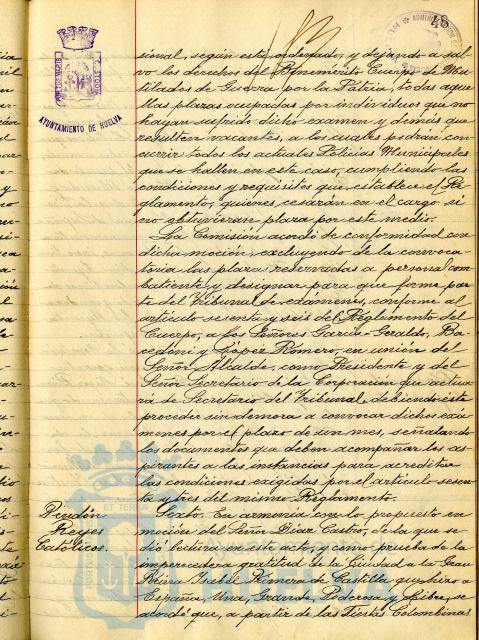 48
AYUNTAMIENTO DE HUELVA
sional, según está ordenado, y dejando a sal-
vo los derechos del Benemérito Cuerpo de Mu-
tilados de Guerra por la Patria, todas aque-
llas plazas ocupadas por individuos que no
hayan sufrido dicho examen y demás que
resulten vacantes, a los cuales podrán con-
currir todos los actuales Policías Municipales
que se hallen en este caso, cumpliendo las
condiciones y requisitos que establece el Re-
glamento, quienes, cesarán en el cargo si
no obtuvieran plaza por este medio.
La Comisión acordó de conformidad con
dicha moción, excluyendo de la convoca-
toria las plazas reservadas a personal com-
batiente, y designar para que forme par-
te del Tribunal de exámenes, conforme al
artículo sesenta y seis del Reglamento del
Cuerpo, a los Señores García-Geraldo,
y López Romero, en unión del
Señor Alcalde, como Presidente y del
Señor Secretario de la Corporación que actua-
rá de Secretario del Tribunal, debiendo este
proceder sin demora a convocar dichos exá-
menes por el plazo de un mes, señalando
los documentos que deben acompañar los as-
pirantes a las instancias para acreditar
las condiciones exigidas por el artículo sesen-
ta y tres del mismo Reglamento.
Pendón
Reyes
Católicos.
Sexto. En armonía con lo propuesto en
moción del Señor Díaz Castro, de la que se
dió lectura en este acto, y como prueba de la
imperecedera gratitud de la Ciudad a la Gran
Reina Isabel Primera de Castilla que hizo a
España, Una, Grande, Poderosa y Libre, se
acordó que, a partir de las Fiestas Colombinas